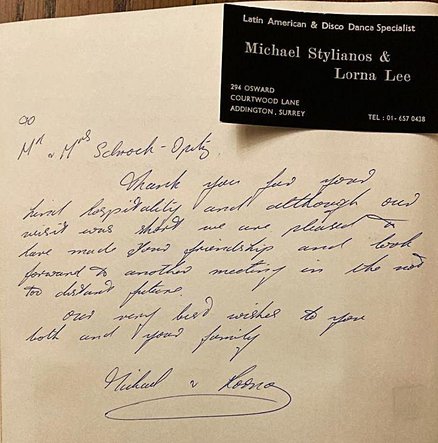 Latin American & Disco Dance Specialist
Michael Stylianos &
Lorna Lee
294 OSWARD
COURTWOOD LANE
ADDINGTON, SURREY
TEL: 01-657 0438
Mr & Mrs Schrock-Opitz,
Thank you for your
kind hospitality and although our
visit was short we are pleased to
have made your friendship and look
forward to another meeting in the not
too distant future.
Our very best wishes to you
both and your family
Michael & Lorna